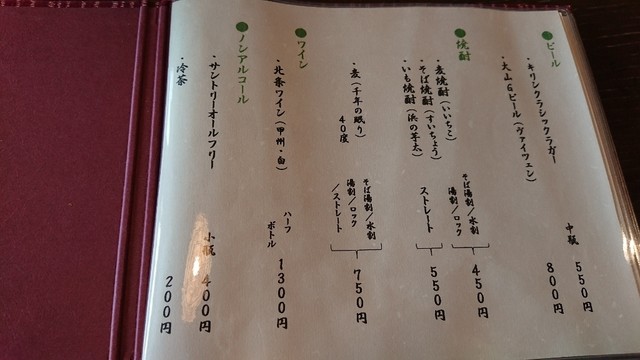 ●ビール
・キリンクラシックラガー 中瓶 550円
・大山Gビール(ヴァイツェン) 800円
●焼酎
・麦焼酎(いいちこ)
・そば焼酎(すいちょう)
・いも焼酎(浜の芋太)
そば湯割/水割
湯割/ロック
450円
ストレート
550円
・麦(千年の眠り)
40度
そば湯割/水割
湯割/ロック
/ストレート
750円
●ワイン
・北条ワイン(甲州・白) ハーフ
ボトル
1300円
●ノンアルコール
・サントリーオールフリー 小瓶 400円
・冷茶 200円